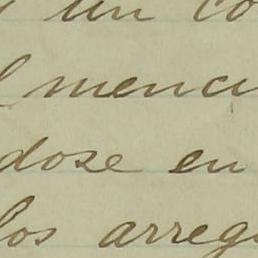 un co
menci
dose en
los arreg